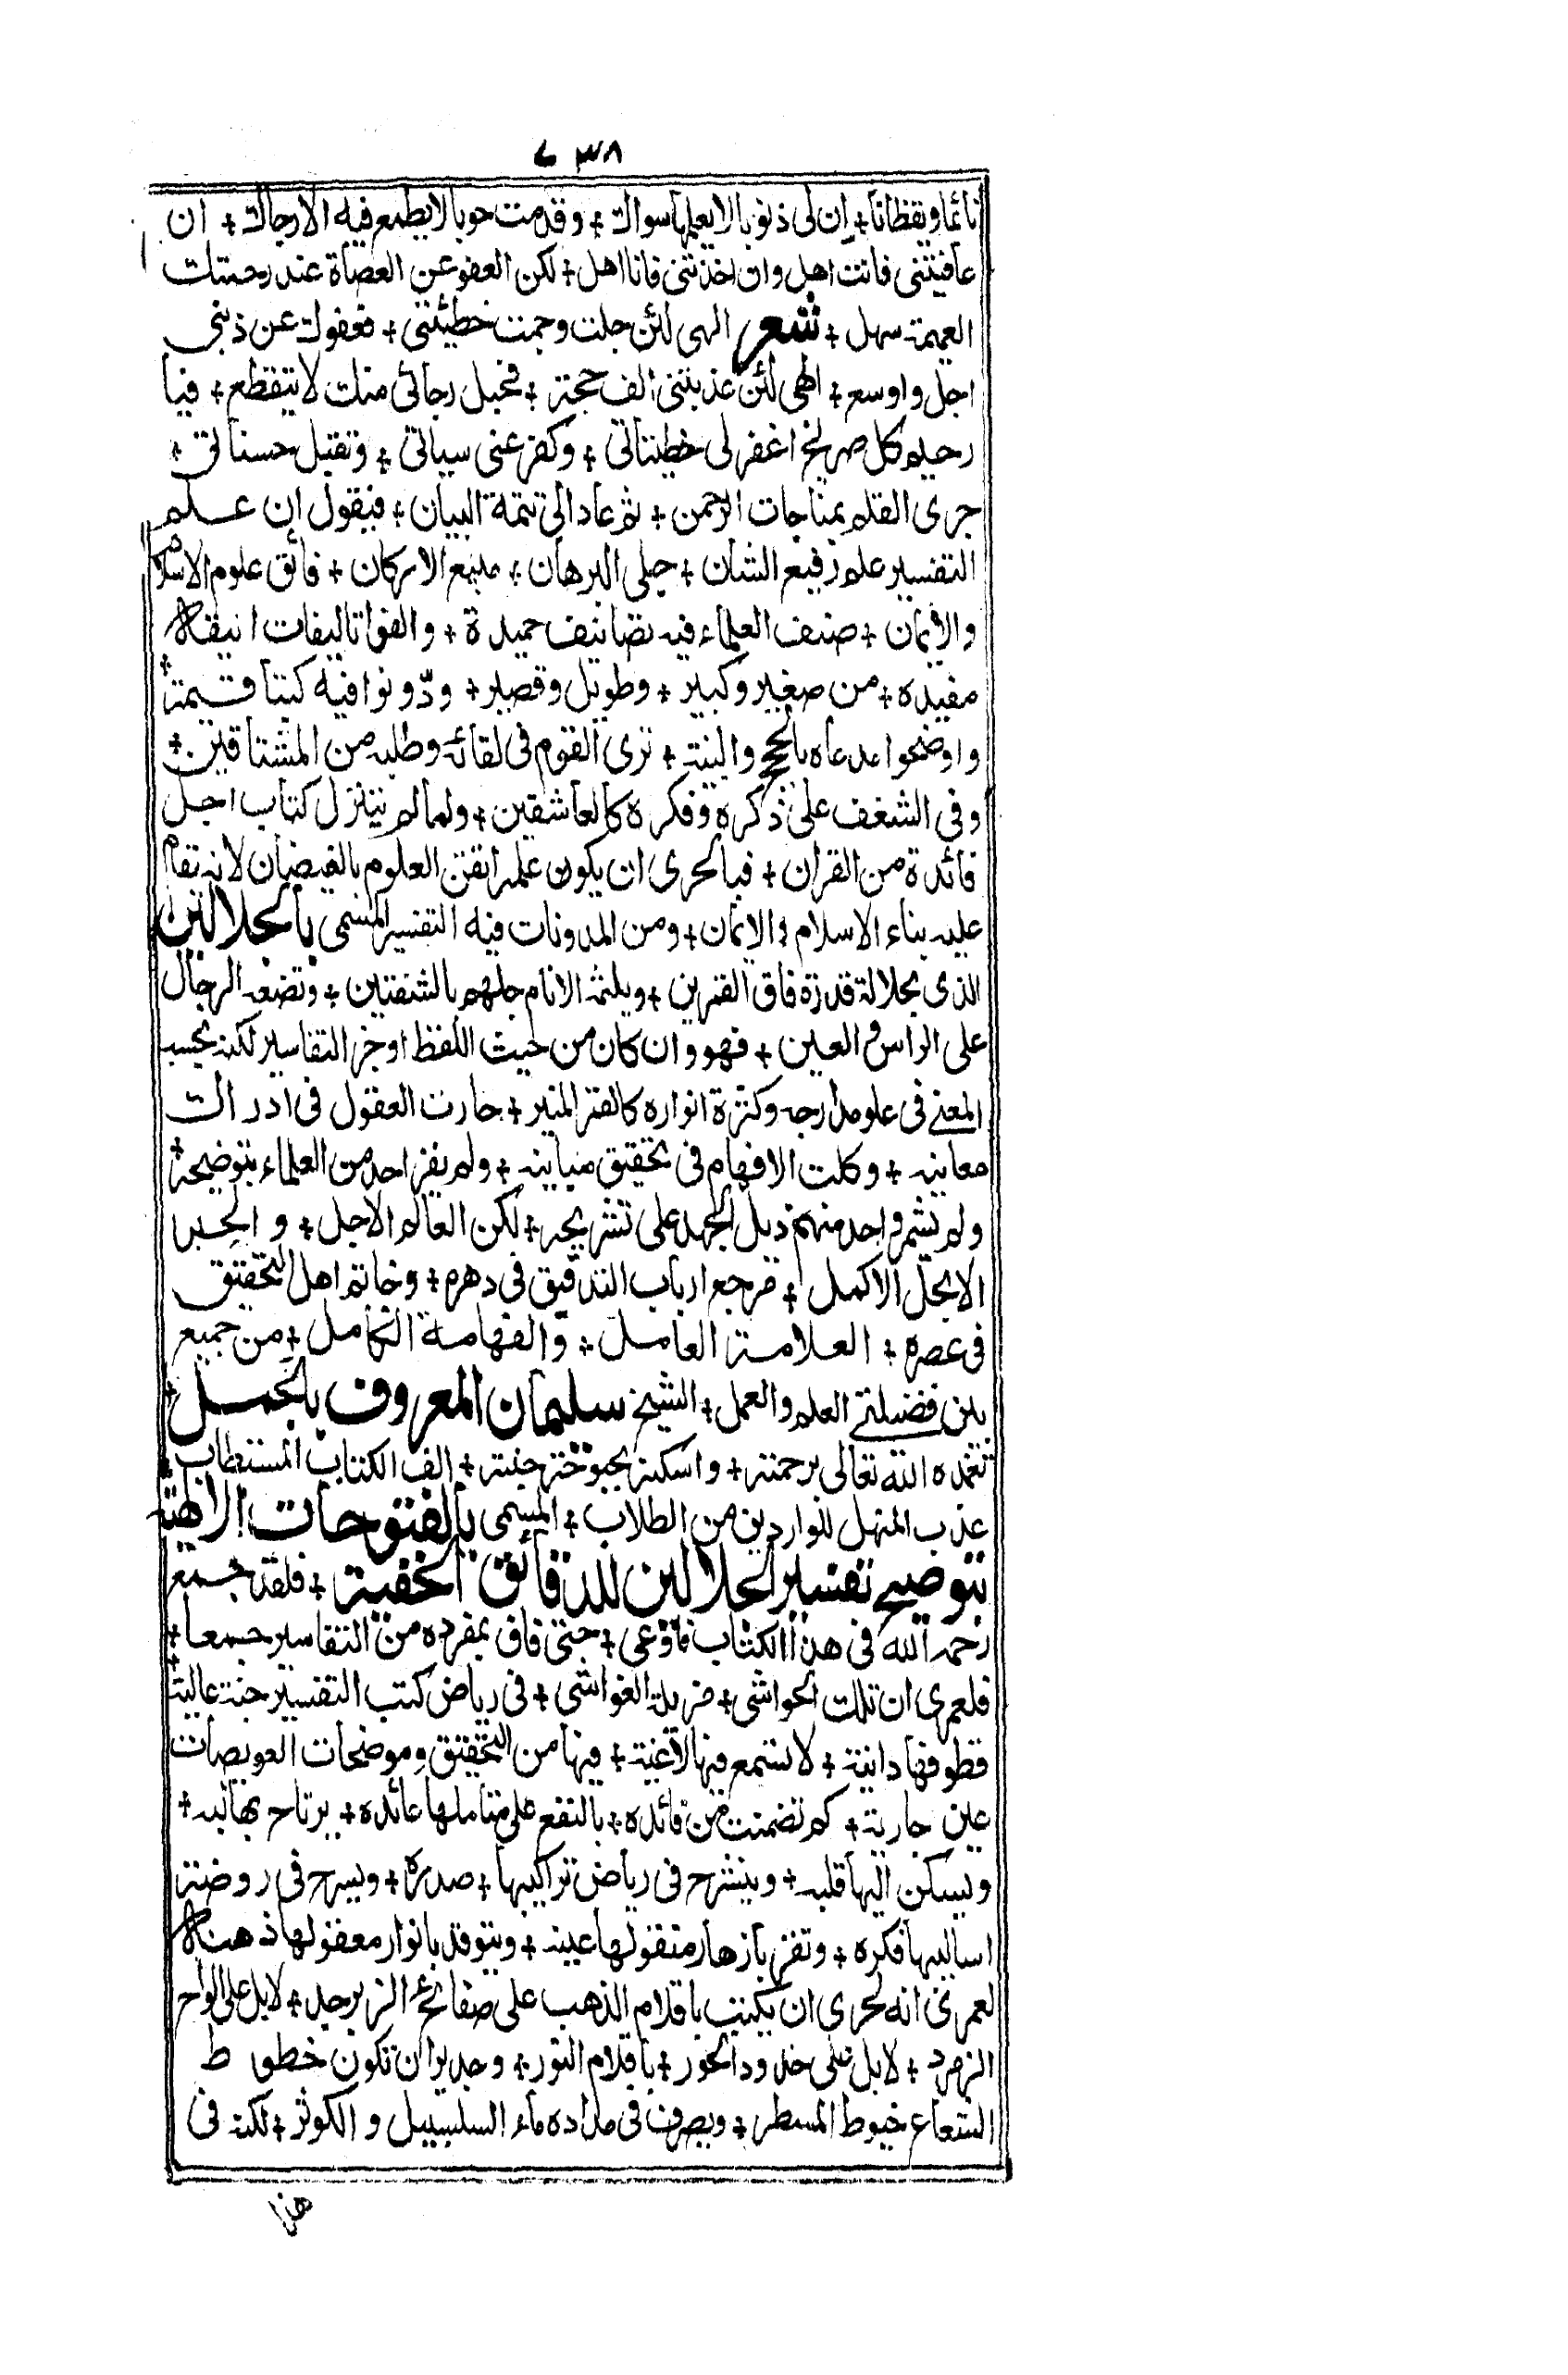 ٧٣٨
نائما ويقظانا + ان لى ذنوبا لا يعلمها سواك + وقدمت حوبا لا يطمع فيه الا رجاك + ان
عافيتنى فانت اهل وان اخذتنى فانا اهل + لكن العفو عن العصاة عند رحمتك
العميمة سهل + شعر الهى لئن جلت وجمت خطيئتى + فعفوك عن ذنبى
اجل واوسع + الهى لئن عذبتنى الف حجة + فحبل رجائى منك لا يتقطع + فيا
رحيم كل صريخ اغفر لى خطيئاتى + وكفر عنى سياتى + وتقبل حسناتى +
جرى القلم بمناجات الرحمن + ثم عاد الى تتمة البيان + فيقول ان علم
التفسير علم رفيع الشان + جلى البرهان + منيع الاركان + فائق علوم الاسلام
والايمان + صنف العلماء فيه تصانيف حميدة + والفوا تاليفات انيقة
مفيده + من صغير وكبير + وطويل وقصير + ودونوا فيه كتبا قيمة +
واوضحوا مدعاه بالحجج والبينة + ترى القوم فى لقائه وطلبه من المشتاقين +
وفى الشغف على ذكره وفكره كالعاشقين + ولما لم ينزل كتاب اجل
فائدة من القران + فبالحرى ان يكون علمه اتقن العلوم بالفيضان لانه تقام
عليه بناء الاسلام والايمان + ومن المدونات فيه التفسير المسمى بالجلالين
الذى بجلالة قدره فاق القمرين + ويلثمه الانام جلهم بالشفتين + وتضعه الرجال
على الراس والعين + فهو وان كان من حيث اللفظ اوجز التفاسير لكنه بحسب
المعنى فى علو مدارجه وكثرة انواره كالقمر المنير + حارت العقول فى ادراك
معانيه + وكلت الافهام فى تحقيق مبانيه + ولم يفز احد من العلماء بتوضيحه +
ولم يشمر واحد منهم ذيل الجهد على تشريحه + لكن العالم الاجل + والحبر
الابجل الاكمل + مرجع ارباب التدقيق فى دهره + وخاتم اهل التحقيق
فى عصره + العلامة العامل + والفهامة الكامل + من جميع
بين فضيلتى العلم والعمل + الشيخ سليمان المعروف بالجمل +
تغمده الله تعالى برحمته + واسكنه بحبوحة جنته + الف الكتاب المستطاب +
عذب المنهل للواردين من الطلاب + المسمى بالفتوحات الالهية
بتوضيح تفسير الجلالين للدقائق الخفية + فلقد جمع
رحمه الله فى هذا الكتاب فاوعى + حتى فاق بمفرده من التفاسير جمعا +
فلعمرى ان تلك الحواشى + مزيلة الغواشى + فى رياض كتب التفسير جنة عالية +
قطوفها دانية + لا تسمع فيها لاغية + فيها من التحقيق وموضحات العويصات
عين جارية + كم تضمنت من فائده + بالنفع على متاملها عائده + يرتاح بها لبه +
ويسكن اليها قلبه + وينشرح فى رياض تراكيبها + صدره + ويسرح فى روضة
اساليبها فكره + وتقر بازهار منقولها عينه + ويتوقد بانوار معقولها ذهنه
لعمرى انه لحرى ان يكتب باقلام الذهب على صفائح الزبرجد + لا بل على الواح
الزمرد + لا بل على خدود الحور + باقلام النور + وجدير ان تكون خطوط
الشعاع خيوط المسطر + ويصرف فى مداده ماء السلسبيل والكوثر + لكنه فى
هذا